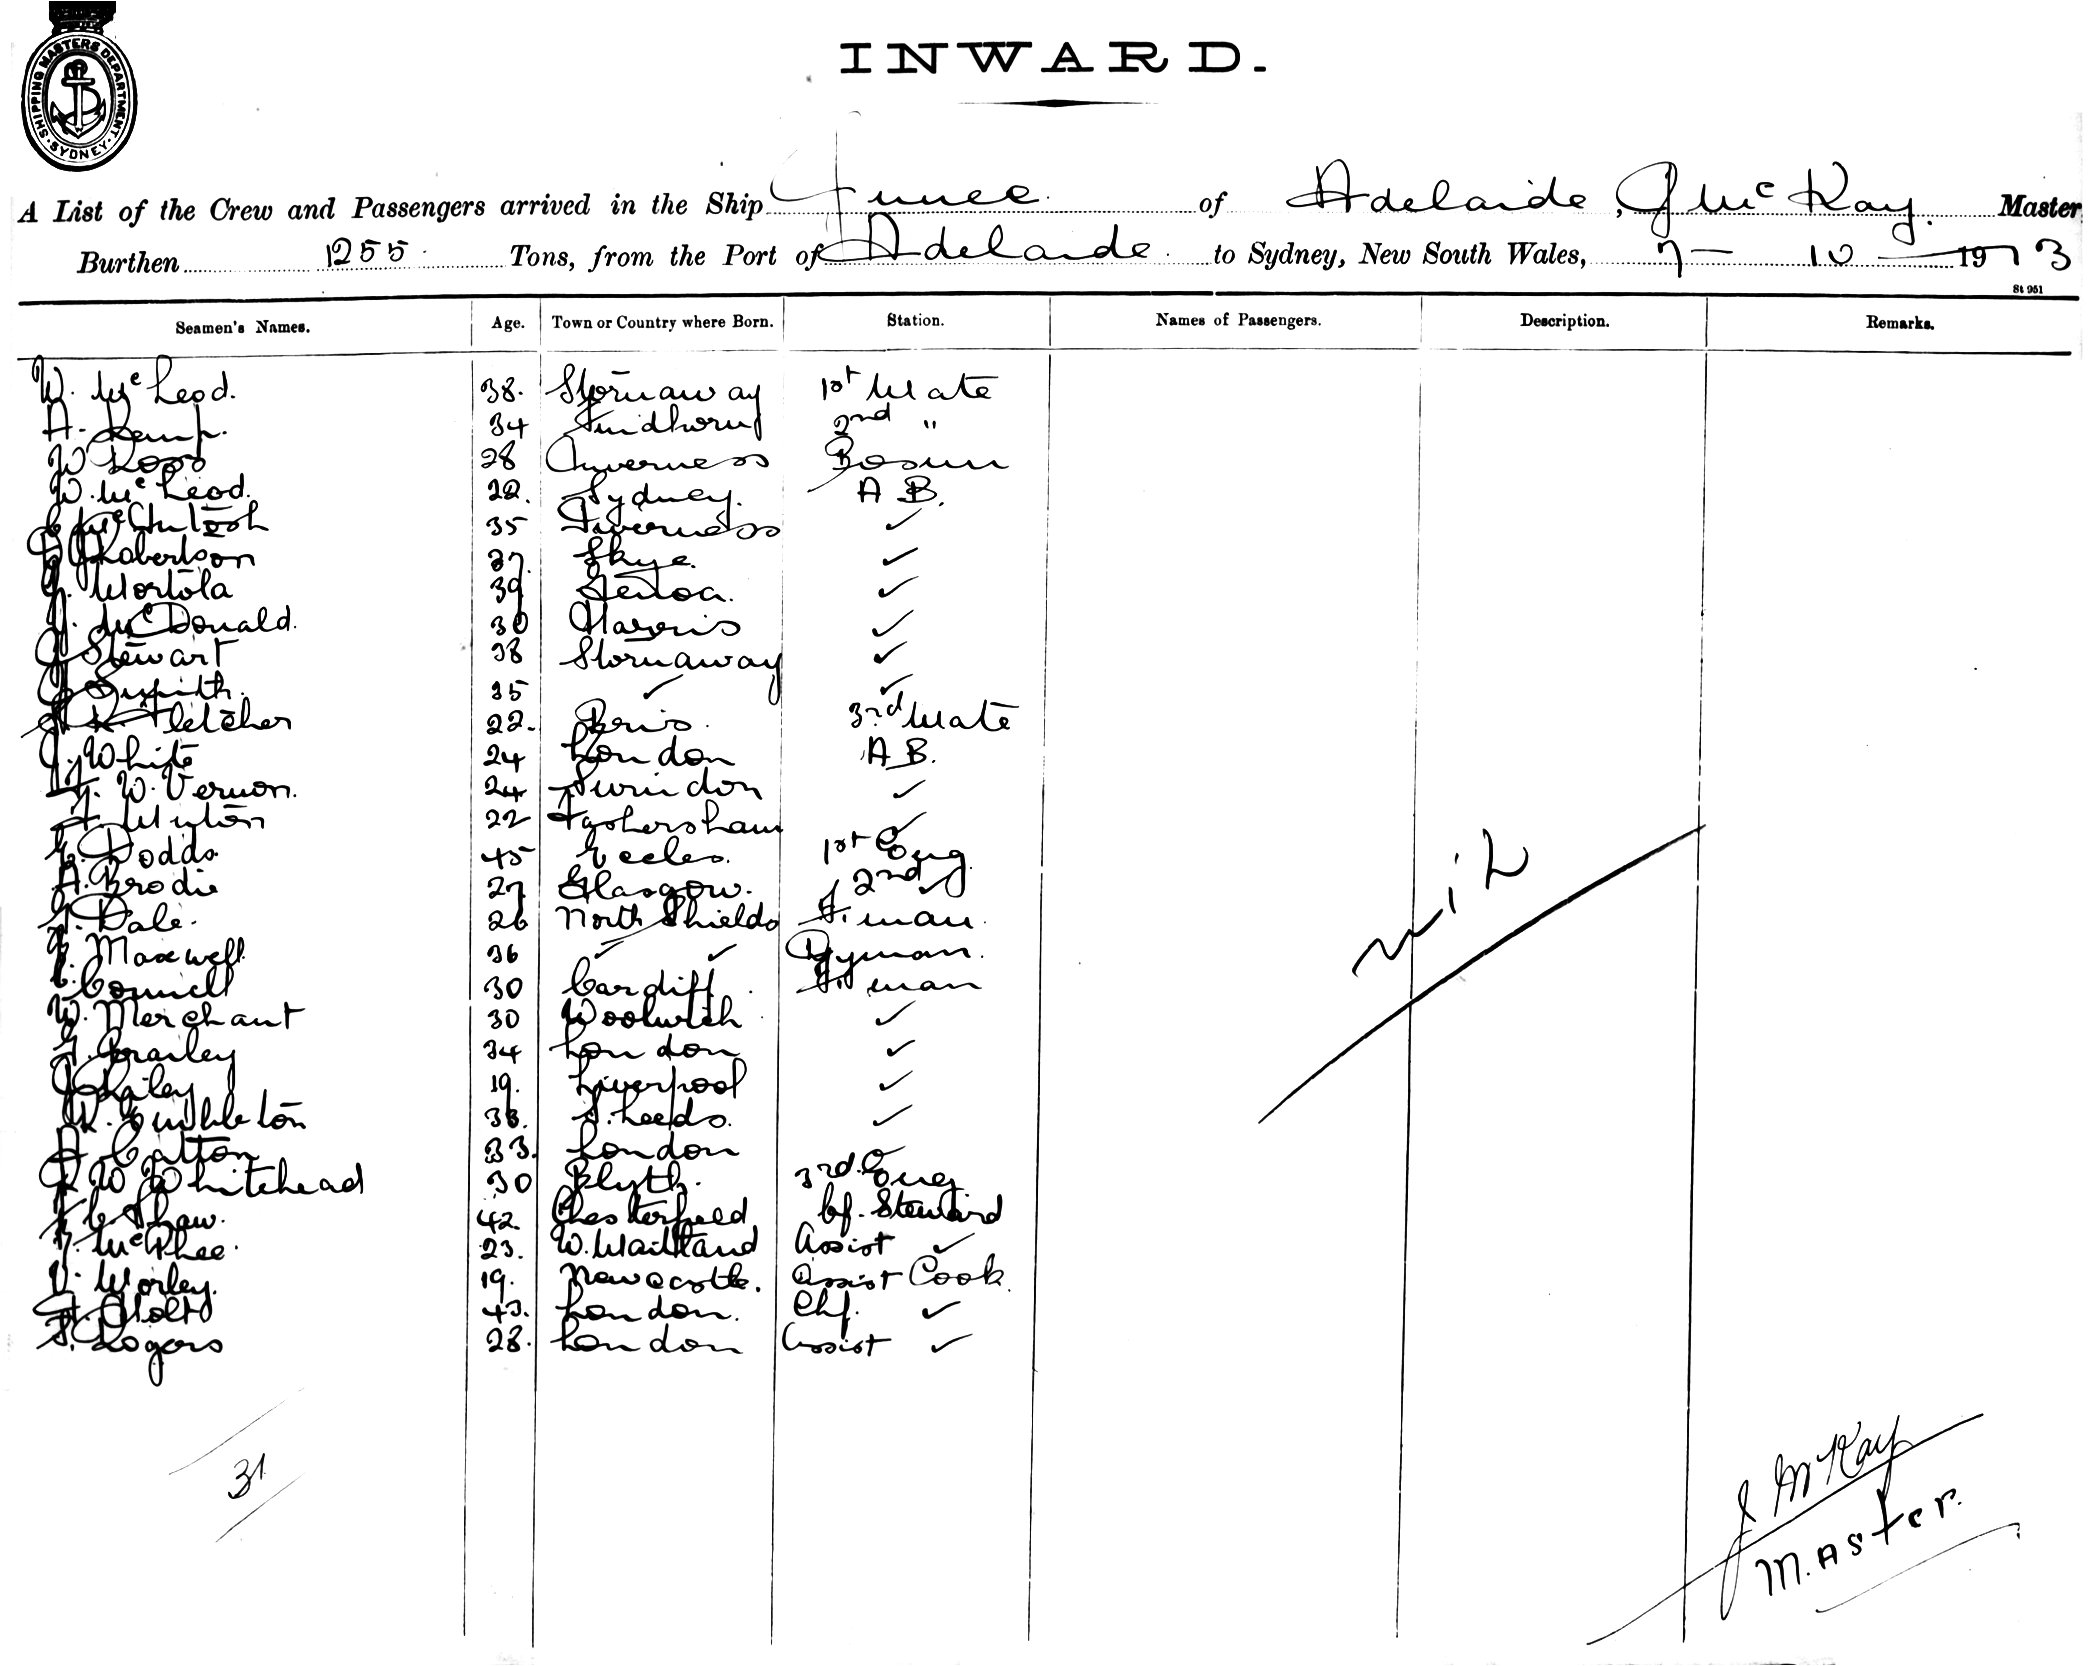 SHIPPING MASTERS DEPARTMENT
SYDNEY
INWARD.
A List of the Crew and Passengers arrived in the Ship Junee of Adelaide, J McKay. Master
Burthen 1255 Tons, from the Port of Adelaide to Sydney, New South Wales, 7 - 10 1913
St 951
Seamen's Names. Age. Town or Country where Born. Station. Names of Passengers. Description. Remarks.
W. McLeod. 38. Stornaway 1st Mate
A. Kemp. 34 Findhorn 2nd "
W Ross 28 Inverness Bosun
W. McLeod. 22. Sydney. A B.
McIntosh 35 Inverness ✓
Robertson 27. Skye. ✓
Mortola 39 Genoa. ✓
McDonald. 30 Harris ✓
J Stewart 38 Stornaway ✓
J Smith. 35 ✓ ✓
Fletcher 22. 3rd Mate
J. White 24 London A B.
F. W. Vernon. 24 Swindon ✓
F. Minton 22 ✓
Dodds. 45 Eccles. 1st Eng
A. Brodie 27 Glasgow. 2nd ✓
Dale. 26 North Shields F. man.
Maxwell. 36 ✓ ✓ Dyman.
Connell 30 Cardiff. F. man
W. Merchant 30 Woolwich ✓
34 London ✓
19. Liverpool ✓
R. Embleton 38. S. Leeds. ✓
A Catton 33. London ✓
W Whitehead 30 Blyth. 3rd. Eng
F C Shaw. 42. Chesterfield Cf. Steward
McPhee. 23. W. Maitland Assist ✓
V. Morley. 19. Newcastle. Assist Cook
Holt 43. London. Chf. ✓
Rogers 28. London Assist ✓
nil
31
J McKay
Master.